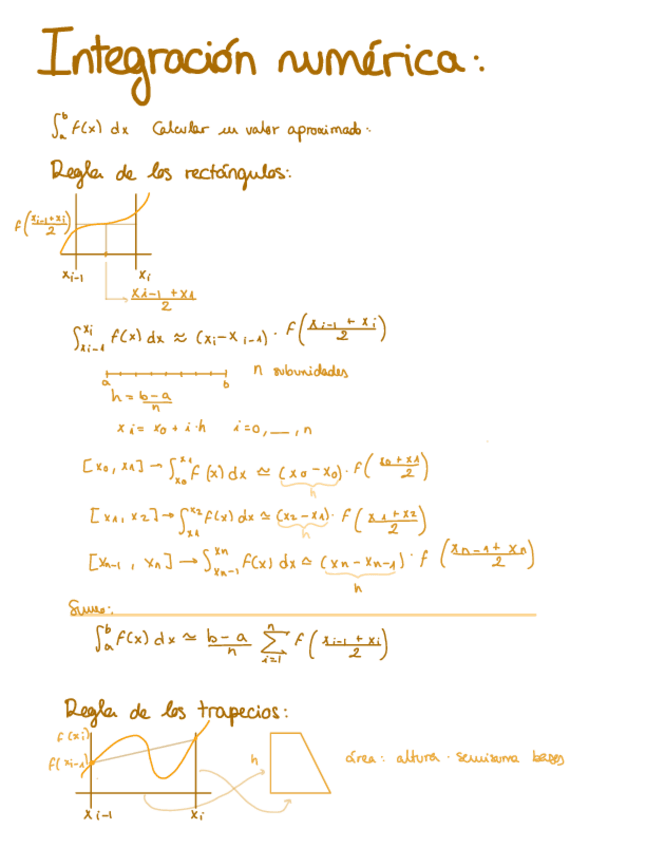 Integración numérica:
∫_a^b f(x) dx Calcular un valor aproximado:
Regla de los rectángulos:
f((x_{i-1}+x_i)/2)
x_{i-1} x_i
(x_{i-1}+x_1)/2
∫_{x_{i-1}}^{x_i} f(x) dx ≈ (x_i-x_{i-1}) · f((x_{i-1}+x_i)/2)
a b n subunidades
h = (b-a)/n
x_i = x_0 + i·h i=0,__,n
[x_0, x_1] → ∫_{x_0}^{x_1} f(x) dx ≃ (x_0-x_0) · f((x_0+x_1)/2)
h
[x_1, x_2] → ∫_{x_1}^{x_2} f(x) dx ≃ (x_2-x_1) · f((x_1+x_2)/2)
h
[x_{n-1}, x_n] → ∫_{x_{n-1}}^{x_n} f(x) dx ≃ (x_n-x_{n-1}) · f((x_{n-1}+x_n)/2)
h
∫_a^b f(x) dx ≃ (b-a)/n ∑_{i=1}^n f((x_{i-1}+x_i)/2)
Regla de los trapecios:
f(x_i)
f(x_{i-1}) h área: altura · semisuma bases
x_{i-1} x_i